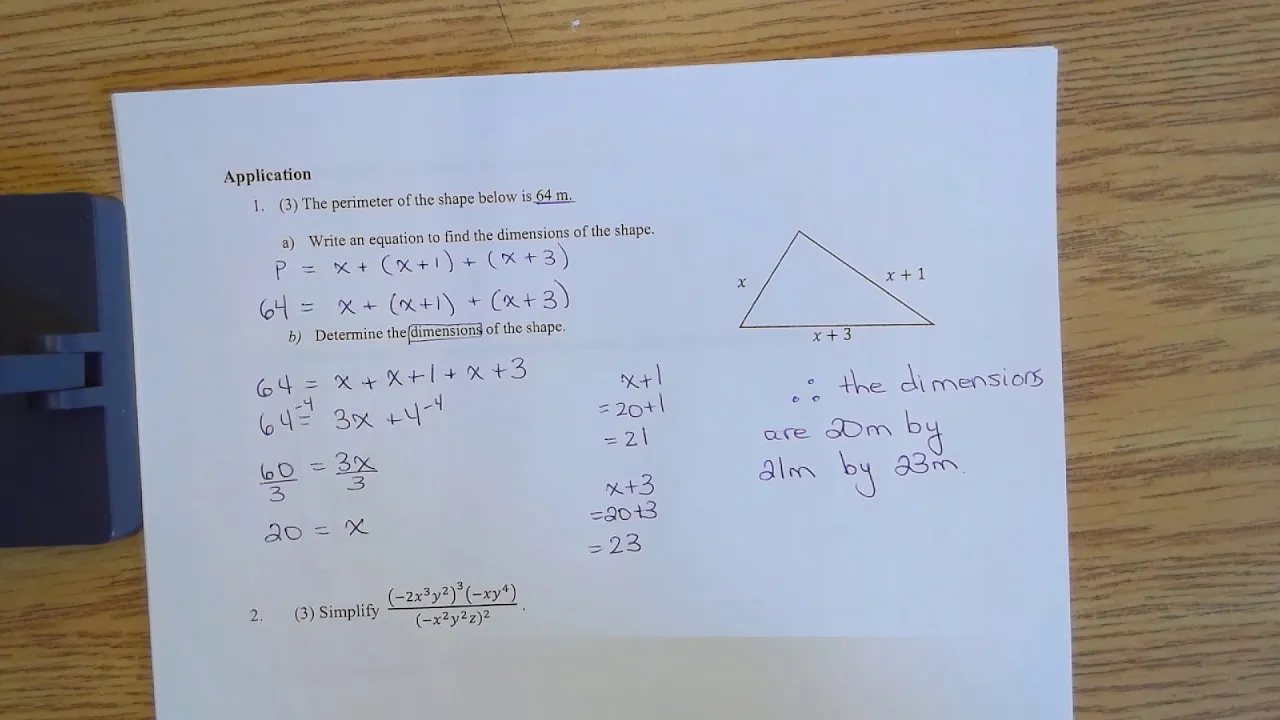 Application
1. (3) The perimeter of the shape below is 64 m.
a) Write an equation to find the dimensions of the shape.
P = x + (x+1) + (x+3)
64 = x + (x+1) + (x+3)
b) Determine the dimensions of the shape.
64 = x + x+1 + x+3
64⁻⁴ = 3x + 4⁻⁴
60/3 = 3x/3
20 = x
x+1
= 20+1
= 21
x+3
= 20+3
= 23
x
x + 1
x + 3
∴ the dimensions
are 20m by
21m by 23m.
2. (3) Simplify (−2x³y²)³(−xy⁴)/(−x²y²z)².